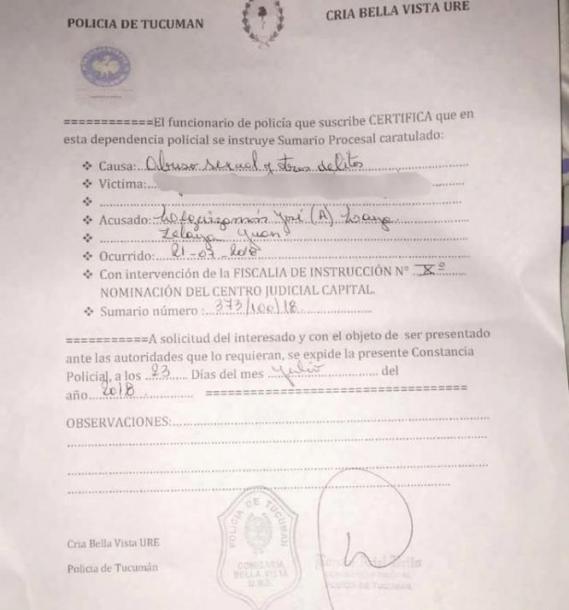 POLICIA DE TUCUMAN
CRIA BELLA VISTA URE
============El funcionario de policía que suscribe CERTIFICA que en
esta dependencia policial se instruye Sumario Procesal caratulado:
❖ Causa:. Abuso sexual y otros delitos
❖ Victima:
❖
❖ Acusado: José (A)
❖ Zelaya Juan
❖ Ocurrido: 21-07-2018
❖ Con intervención de la FISCALIA DE INSTRUCCIÓN Nº X º
NOMINACIÓN DEL CENTRO JUDICIAL CAPITAL.
❖ Sumario número : 373/100/18
===========A solicitud del interesado y con el objeto de ser presentado
ante las autoridades que lo requieran, se expide la presente Constancia
Policial, a los 23 Días del mes Julio del
año 2018 ===================================
OBSERVACIONES:
POLICIA DE TUCUMAN
COMISARIA
BELLA VISTA
U.R.E.
Cria Bella Vista URE
Policía de Tucumán
POLICIA DE TUCUMAN